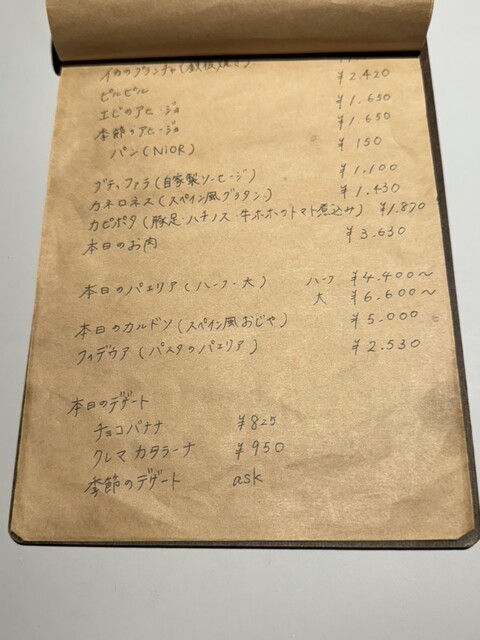 イカのプランチャ(鉄板焼き)
ピルピル ¥2.420
エビのアヒージョ ¥1.650
季節のアヒージョ ¥1.650
パン(NIOR) ¥150
ブティファラ(自家製ソーセージ) ¥1.100
カネロネス(スペイン風グラタン) ¥1.430
カピポタ(豚足・ハチノス・牛ホホのトマト煮込み) ¥1.870
本日のお肉 ¥3.630
本日のパエリア(ハーフ・大) ハーフ ¥4.400〜
大 ¥6.600〜
本日のカルドソ(スペイン風おじや) ¥5.000
フィデウア(パスタのパエリア) ¥2.530
本日のデザート
チョコバナナ ¥825
クレマ カタラーナ ¥950
季節のデザート ask